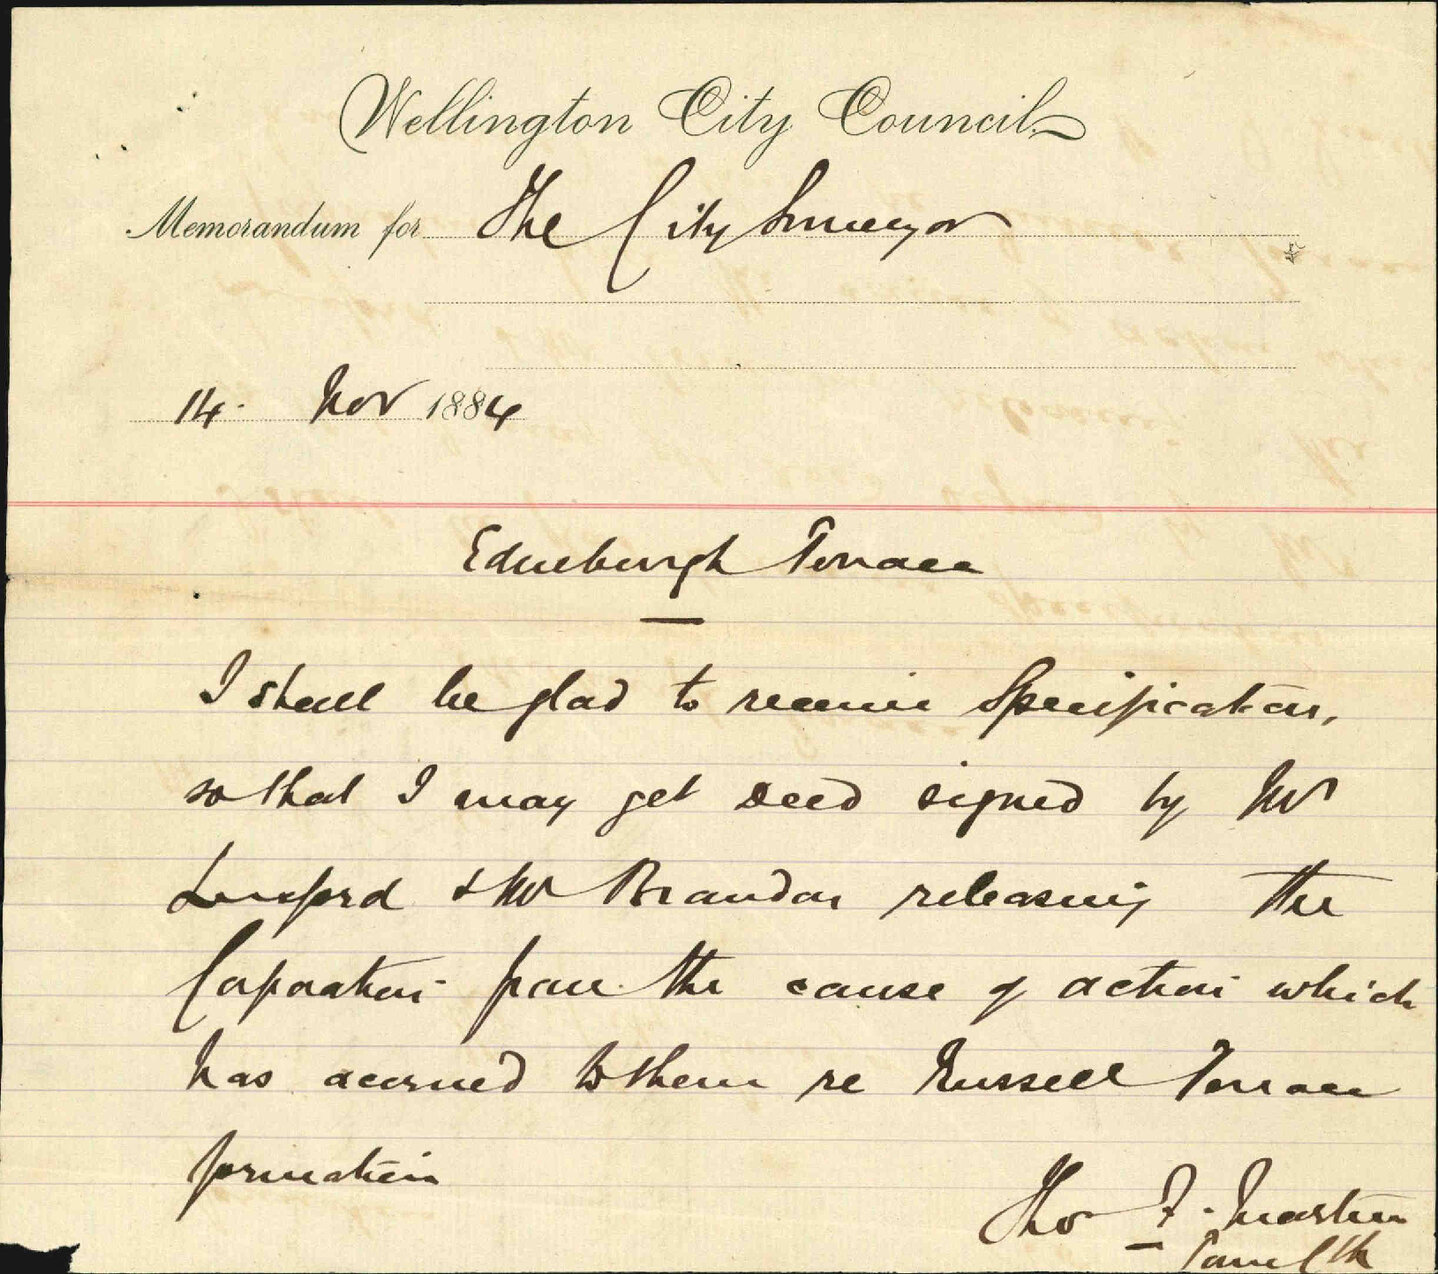 Wellington City Council
Memorandum for The City Surveyor
14. Nov 1884
Edinburgh Terrace
I shall be glad to receive Specification,
so that I may get deed signed by Mr
Luxford & Mr Brandon releasing the
Corporation from the cause of action which
has accrued to them re Russell Terrace
formation
Thos F. Martin